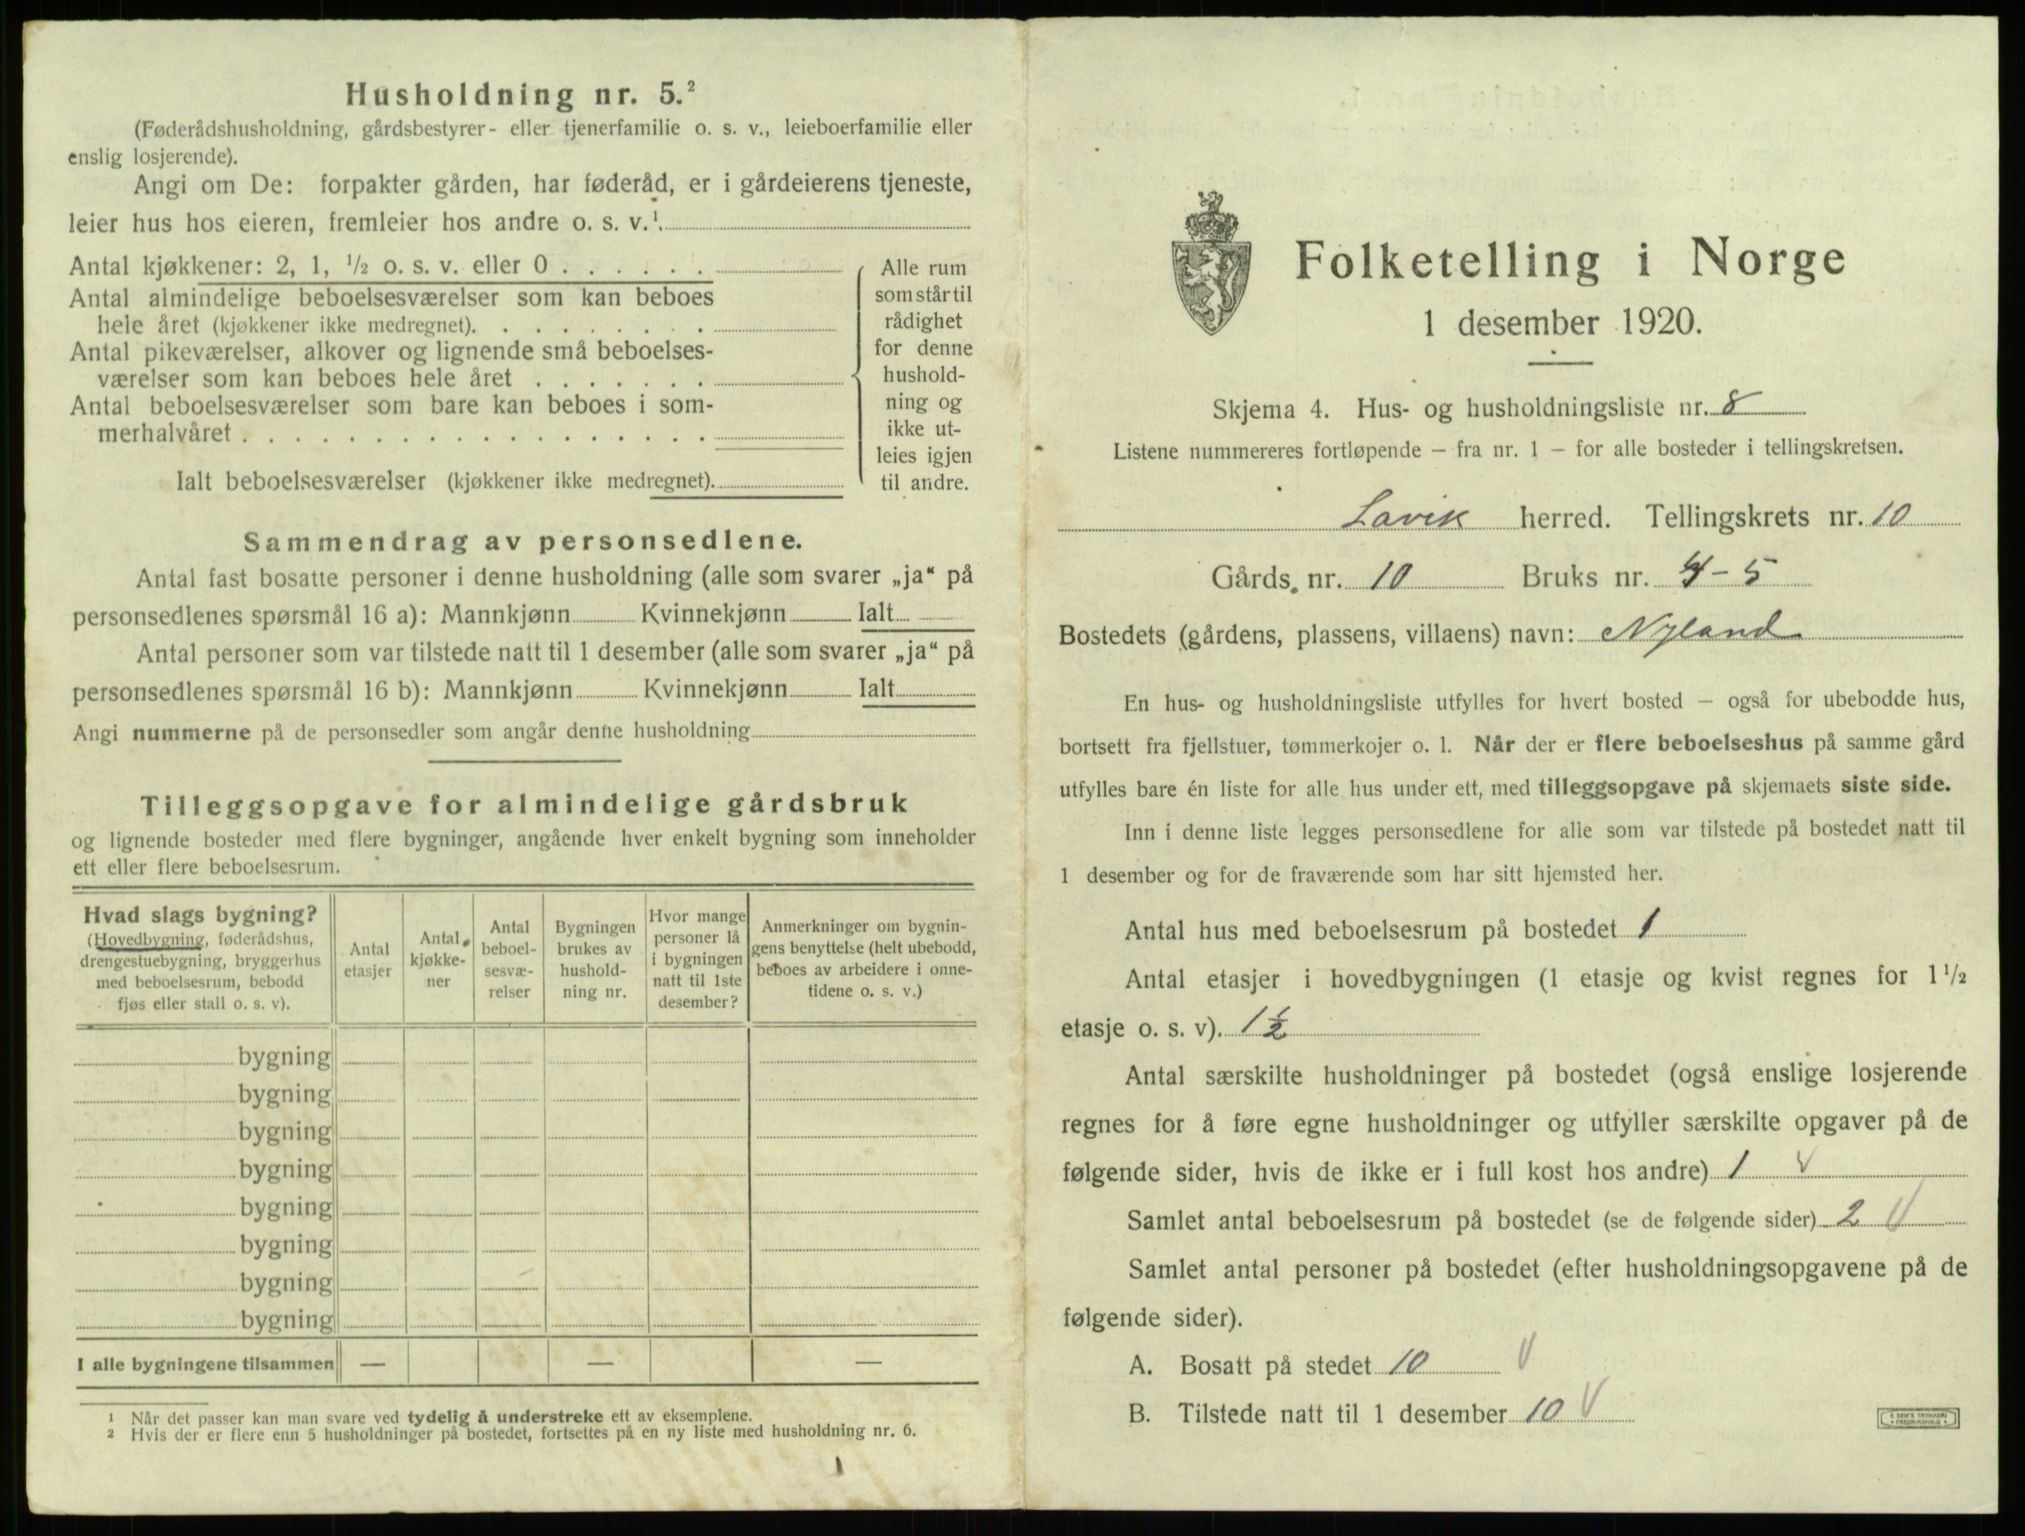 Husholdning nr. 5.²
(Føderådshusholdning, gårdsbestyrer- eller tjenerfamilie o. s. v., leieboerfamilie eller
enslig losjerende).
Angi om De: forpakter gården, har føderåd, er i gårdeierens tjeneste,
leier hus hos eieren, fremleier hos andre o. s. v.¹.
Antal kjøkkener: 2, 1, ½ o. s. v. eller 0 . . . . . .
Antal almindelige beboelsesværelser som kan beboes
hele året (kjøkkener ikke medregnet). . . . . . . . .
Antal pikeværelser, alkover og lignende små beboelses-
værelser som kan beboes hele året . . . . . . .
Antal beboelsesværelser som bare kan beboes i som-
merhalvåret . . . . . . . . . . . . . . . . . .
Ialt beboelsesværelser (kjøkkener ikke medregnet).
Alle rum
som står til
rådighet
for denne
hushold-
ning og
ikke ut-
leies igjen
til andre.
Sammendrag av personsedlene.
Antal fast bosatte personer i denne husholdning (alle som svarer „ja“ på
personsedlenes spørsmål 16 a): Mannkjønn Kvinnekjønn Ialt
Antal personer som var tilstede natt til 1 desember (alle som svarer „ja“ på
personsedlenes spørsmål 16 b): Mannkjønn Kvinnekjønn Ialt
Angi nummerne på de personsedler som angår denne husholdning
Tilleggsopgave for almindelige gårdsbruk
og lignende bosteder med flere bygninger, angående hver enkelt bygning som inneholder
ett eller flere beboelsesrum.
Hvad slags bygning?
(Hovedbygning, føderådshus,
drengestuebygning, bryggerhus
med beboelsesrum, bebodd
fjøs eller stall o. s. v).
Antal
etasjer
Antal
kjøkke-
ner
Antal
beboel-
sesvæ-
relser
Bygningen
brukes av
hushold-
ning nr.
Hvor mange
personer lå
i bygningen
natt til 1ste
desember?
Anmerkninger om bygnin-
gens benyttelse (helt ubebodd,
beboes av arbeidere i onne-
tidene o. s. v.)
bygning
bygning
bygning
bygning
bygning
bygning
bygning
bygning
I alle bygningene tilsammen — — —
¹ Når det passer kan man svare ved tydelig å understreke ett av eksemplene.
² Hvis der er flere enn 5 husholdninger på bostedet, fortsettes på en ny liste med husholdning nr. 6.
Folketelling i Norge
1 desember 1920.
Skjema 4. Hus- og husholdningsliste nr. 8
Listene nummereres fortløpende – fra nr. 1 – for alle bosteder i tellingskretsen.
Lavik herred. Tellingskrets nr. 10
Gårds. nr. 10 Bruks nr. 4-5
Bostedets (gårdens, plassens, villaens) navn: Nyland
En hus- og husholdningsliste utfylles for hvert bosted – også for ubebodde hus,
bortsett fra fjellstuer, tømmerkojer o. l. Når der er flere beboelseshus på samme gård
utfylles bare én liste for alle hus under ett, med tilleggsopgave på skjemaets siste side.
Inn i denne liste legges personsedlene for alle som var tilstede på bostedet natt til
1 desember og for de fraværende som har sitt hjemsted her.
Antal hus med beboelsesrum på bostedet 1
Antal etasjer i hovedbygningen (1 etasje og kvist regnes for 1½
etasje o. s. v). 1½
Antal særskilte husholdninger på bostedet (også enslige losjerende
regnes for å føre egne husholdninger og utfyller særskilte opgaver på de
følgende sider, hvis de ikke er i full kost hos andre) 1
Samlet antal beboelsesrum på bostedet (se de følgende sider) 2
Samlet antal personer på bostedet (efter husholdningsopgavene på de
følgende sider).
A. Bosatt på stedet 10
B. Tilstede natt til 1 desember 10